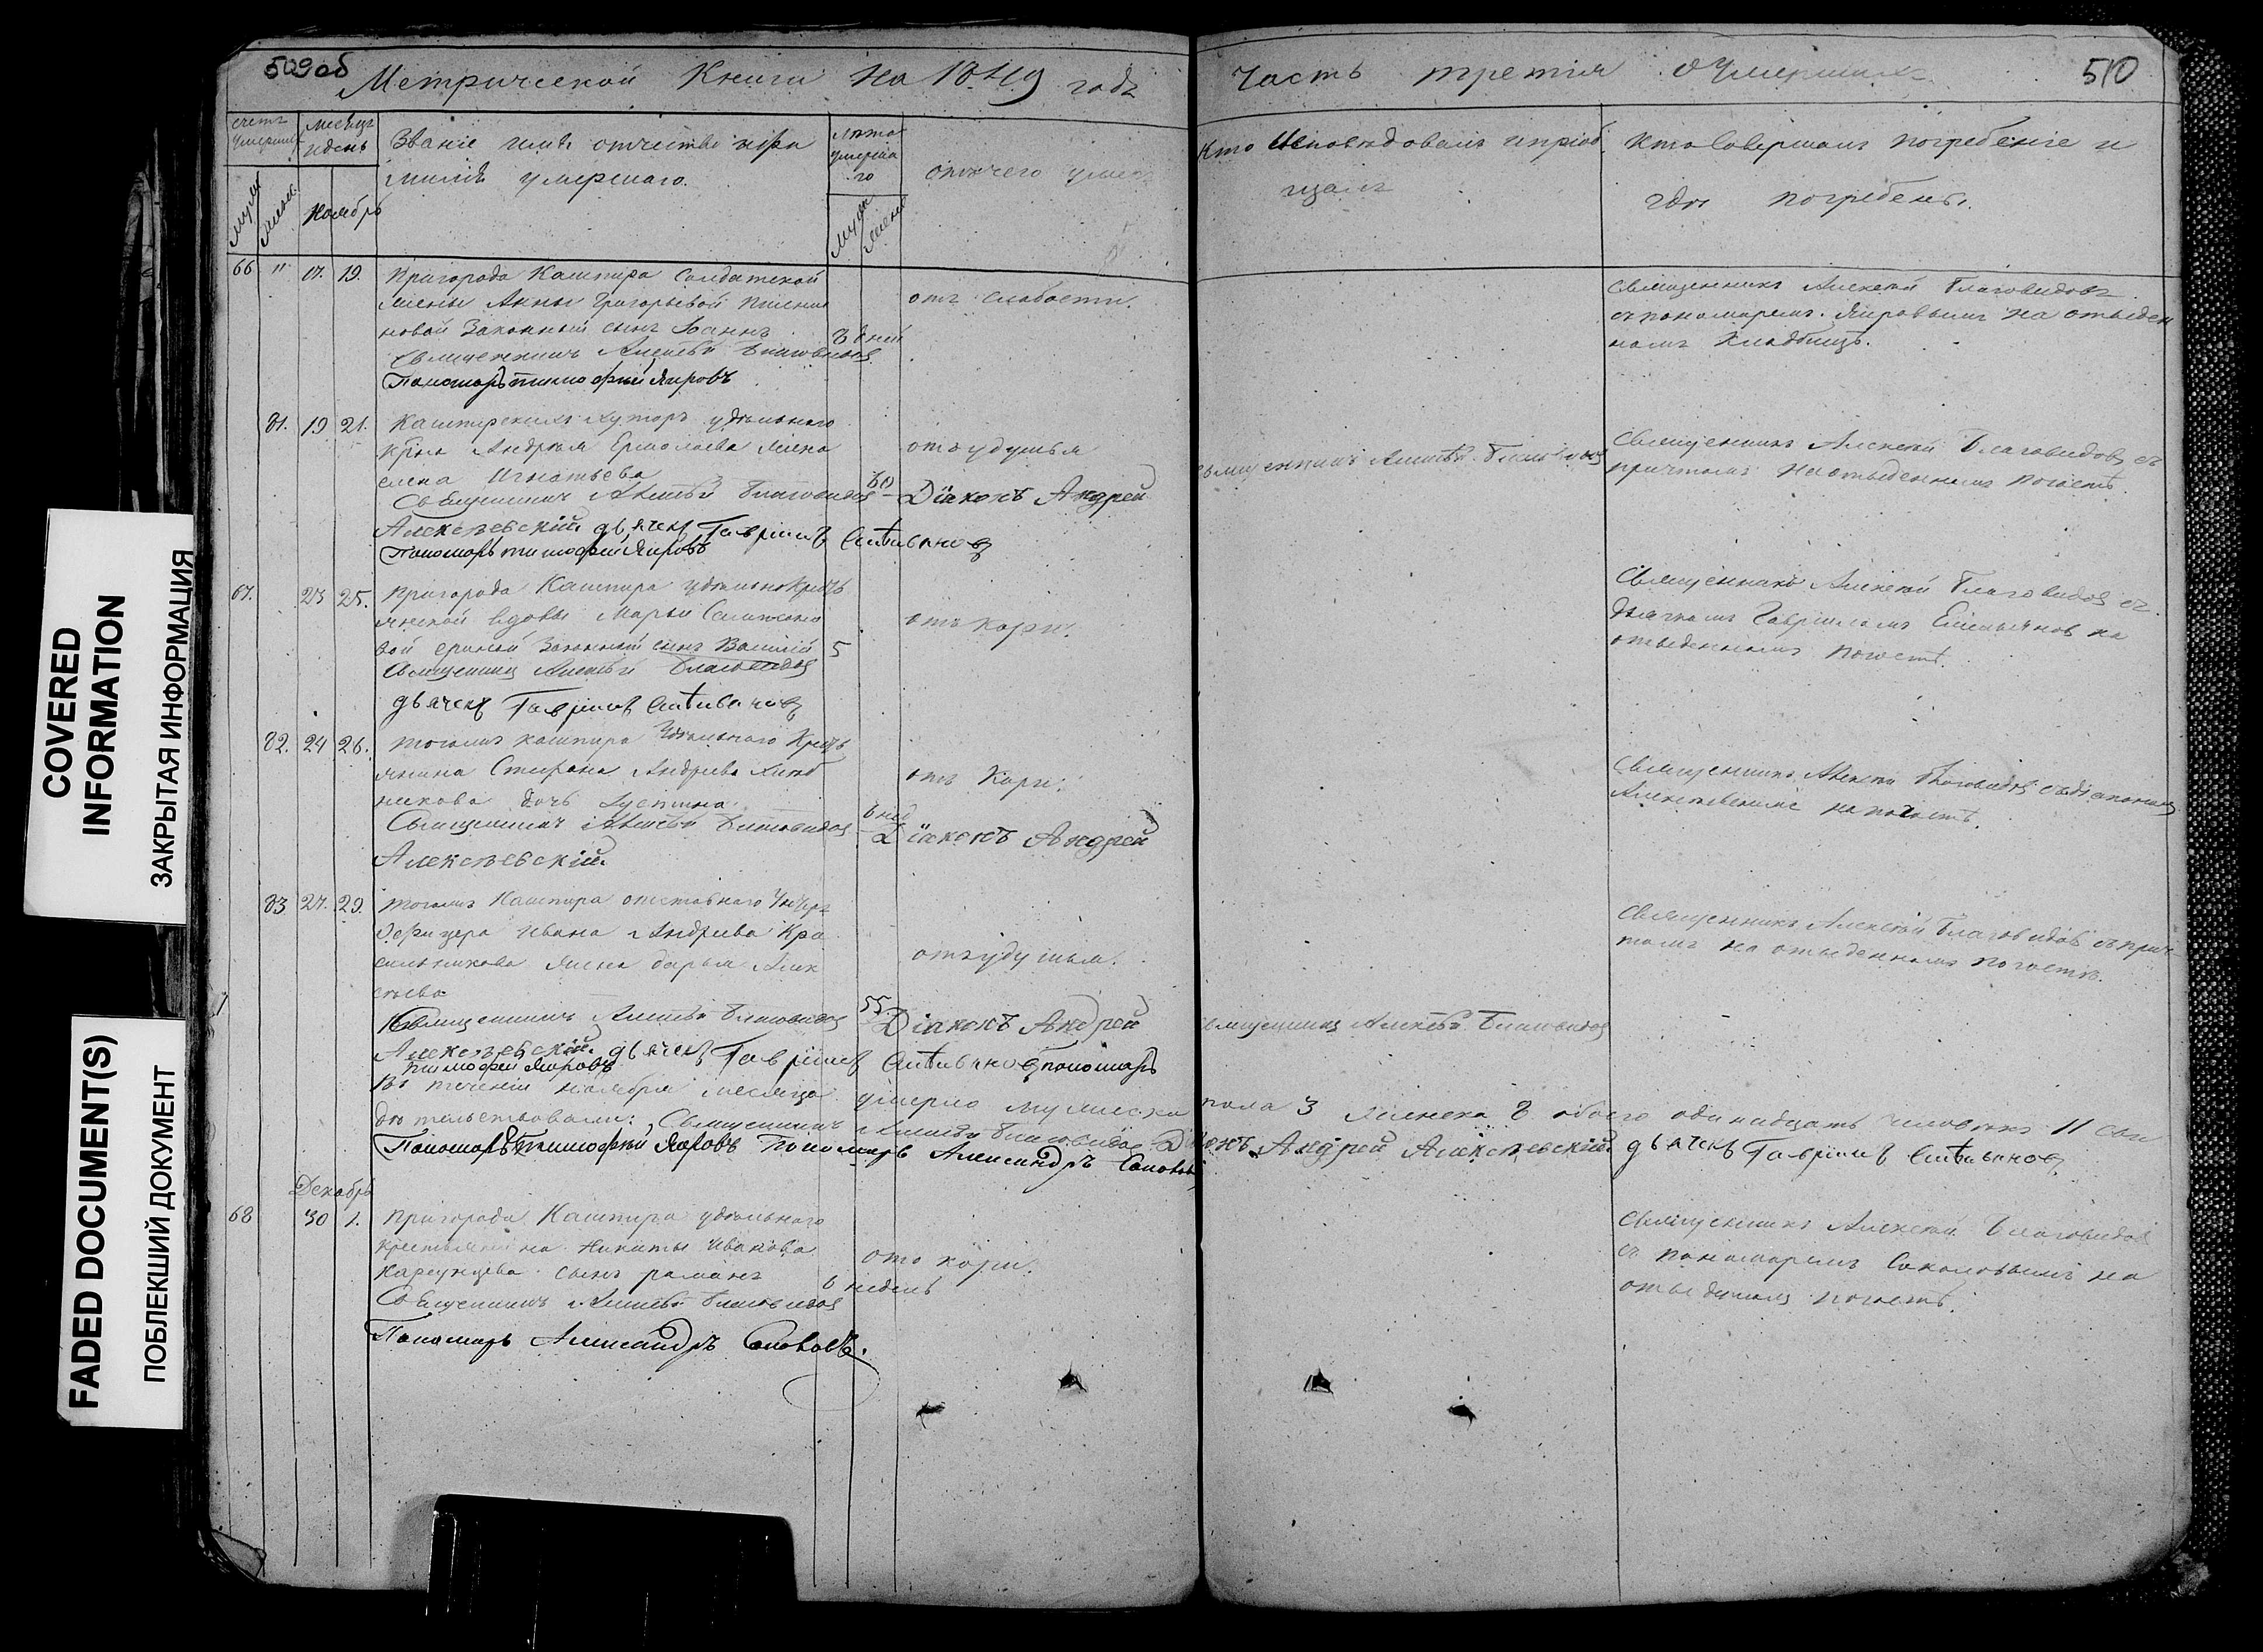 509об
Метрической Книги на 1849 годъ
Часть третія о Умершихъ
510
счетъ умершихъ
месяцъ и день
Званіе имя отчество и фа
милія умершаго.
лета
умерша
го
отъ чего умеръ
Кто Исповедовалъ и пріоб
щалъ
Кто Совершалъ погребеніе и
где погребены.
муж
женс.
Ноябрь
муж
женс
66 " 17. 19. Пригорода Кашпира Солдатской
жены Анны Григорьевой
новой Законный сынъ Іоаннъ
8 дней
отъ слабости.
Священникъ Алексей Благовидовъ
Пономарь Тимофей Яировъ
Священникъ Алексей Благовидовъ
съ пономаремъ Яировымъ на отведен
номъ Кладбище.
81. 19 21. Кашпирскихъ Хуторъ удельнаго
Андрея Ермолаева жена
Елена Игнатьева
60
отъ удушья
Священникъ Алексей Благовидовъ Діаконъ Андрей
Алексеевскій дьячекъ Гавріилъ
Пономарь Тимофей Яировъ
Священникъ Алексей Благовидовъ
Священникъ Алексей Благовидовъ съ
причтомъ на отведенномъ погосте.
67. 23 25. Пригорода Кашпира удельной Кресть
янской вдовы Марьи
вой Законный сынъ Василій 5
отъ кори.
Священникъ Алексей Благовидовъ
дьячекъ Гавріилъ
Священникъ Алексей Благовидовъ съ
дьячкомъ Гавріиломъ на
отведенномъ погосте.
82. 24 26. Тогожъ Кашпира Удельнаго Кресть
янина Стефана Андреева
никова дочь Іустина
6 нед
отъ Кори.
Священникъ Алексей Благовидовъ Діаконъ Андрей
Алексеевскій
Священникъ Алексей Благовидовъ съ діакономъ
Алексеевскимъ на погосте.
83 27. 29. Тогожъ Кашпира отставного Унтеръ
Офицера Ивана Андреева Кра
сильникова жена Дарья Алек
сеева
55
отъ удушья.
Священникъ Алексей Благовидовъ Діаконъ Андрей
Алексеевскій дьячекъ Гавріилъ пономарь
Тимофей Яировъ
Священникъ Алексей Благовидовъ
Священникъ Алексей Благовидовъ съ прич
томъ на отведенномъ погосте.
Въ теченіи ноября месяца умерло мужеска пола 3 женска 8 обоего одинадцать человекъ 11 сви
детельствовали: Священникъ Алексей Благовидовъ Діаконъ Андрей Алексеевскій дьячекъ Гавріилъ
Пономарь Тимофей Яировъ Пономарь Александръ
Декабрь
68 30 1. Пригорода Кашпира удельнаго
крестьянина Никиты Иванова
сынъ Романъ 6 недель
отъ кори.
Священникъ Алексей Благовидовъ
Пономарь Александръ
Священникъ Алексей Благовидовъ
съ пономаремъ Соколовымъ на
отведенномъ погосте.
COVERED
INFORMATION
ЗАКРЫТАЯ ИНФОРМАЦИЯ
FADED DOCUMENT(S)
ПОБЛЕКШИЙ ДОКУМЕНТ